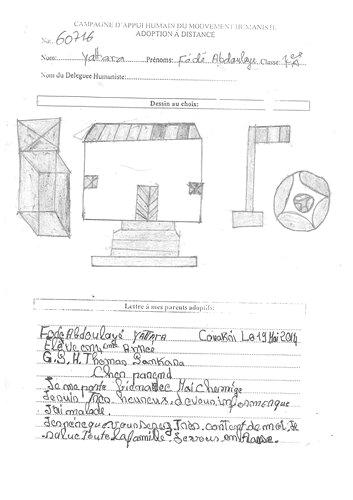 CAMPAGNE D'APPUI HUMAIN DU MOUVEMENT HUMANISTE
ADOPTION À DISTANCE
No: 60716
Nom: Yattara Prénoms: Fodé Abdoulaye Classe: 7e A
Nom du Deleguee Humaniste:
Dessin au choix:
Lettre à mes parents adoptifs:
Fodé Abdoulayé Yattara Conakri Le 19 Mai 2014
Elève en année
G.S.H. Thomas Sankara
Cher parend
Je me porte bid mai
Je suis heureux de vous
J'ai malade.
vous content de moi. Je
salue toute la famille. Je vous